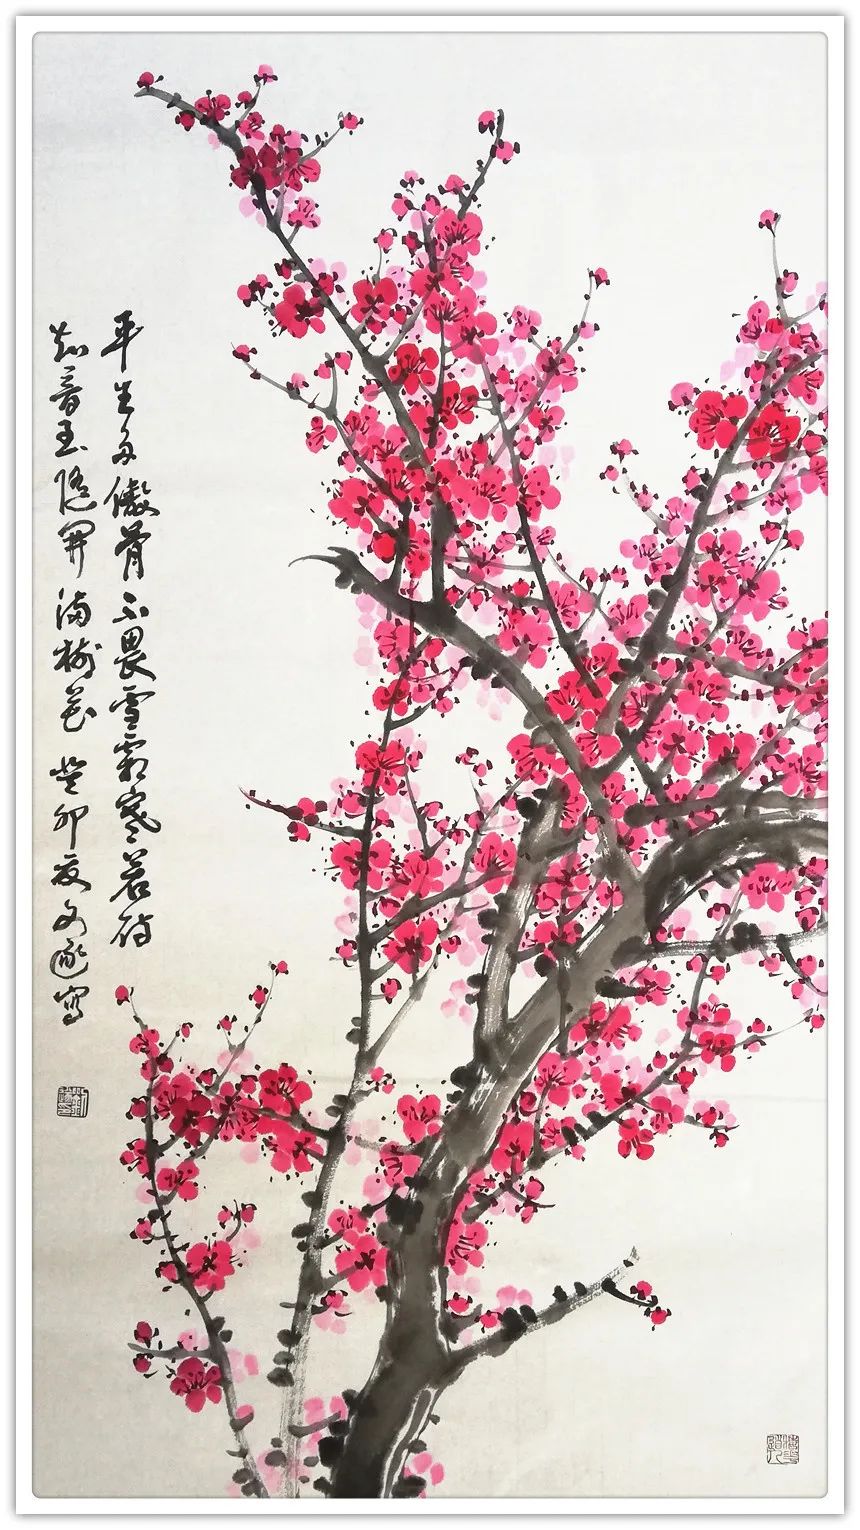 平生多傲骨不畏雪霜寒若待
知音至随開满树花 癸卯夏文遂写